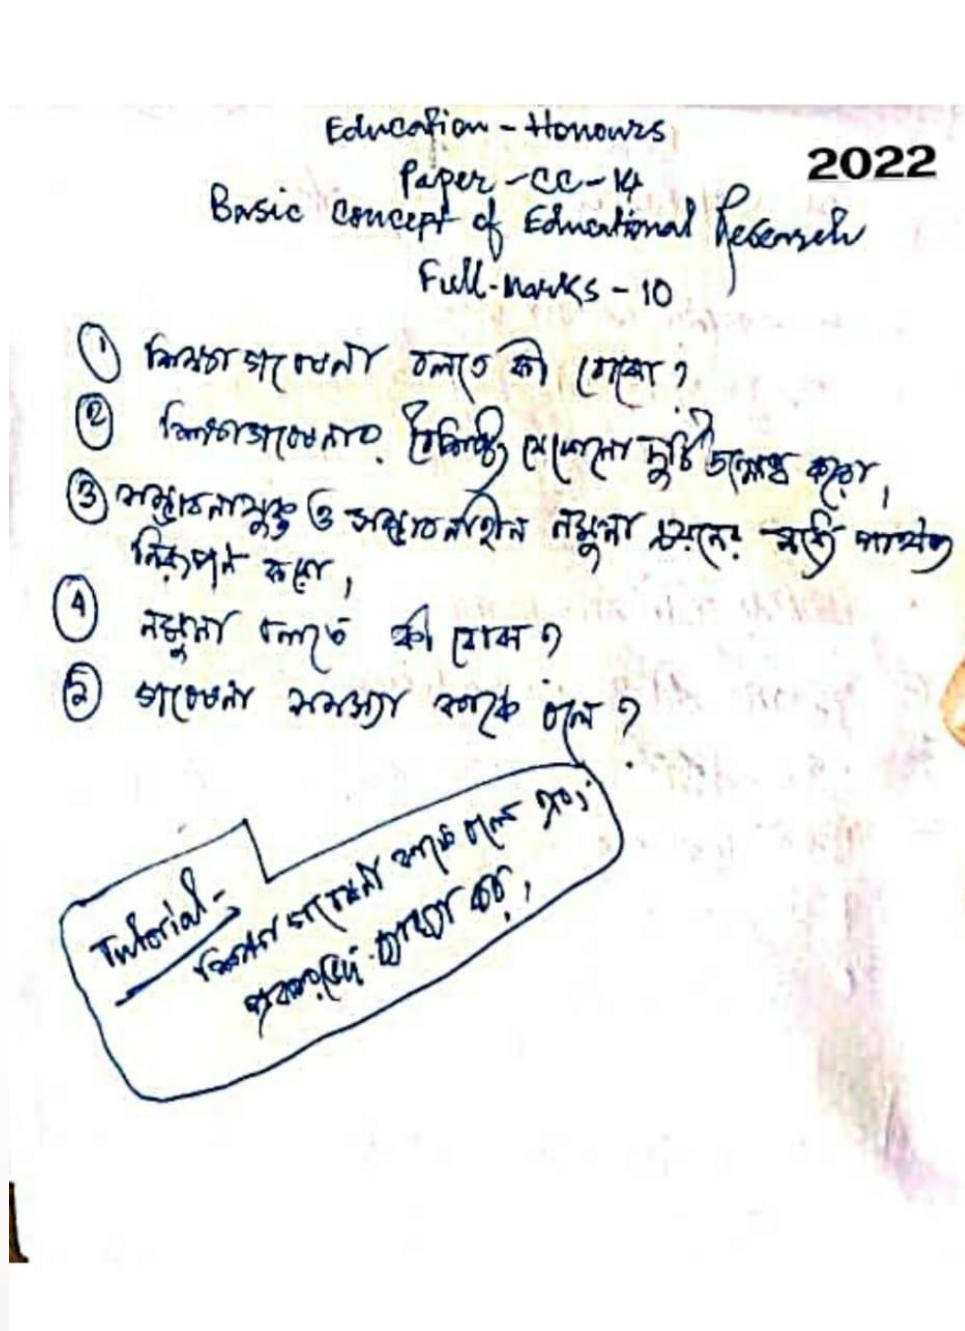 Education - Honours
2022
Paper - CC - 14
Basic Concept of Educational Research
Full-Marks - 10
① শিক্ষাগবেষণা বলতে কী বোঝো ?
② শিক্ষাগবেষণার বৈশিষ্ট্য যেকোনো দুটি উল্লেখ করো ।
③ সম্ভাবনাযুক্ত ও সম্ভাবনাহীন নমুনা চয়নের মধ্যে পার্থক্য
নিরূপণ করো ।
④ নমুনা বলতে কী বোঝ ?
⑤ গবেষণা সমস্যা কাকে বলে ?
Tutorial -
শিক্ষা গবেষণা কাকে বলে এবং
প্রকারভেদ ব্যাখ্যা কর ।